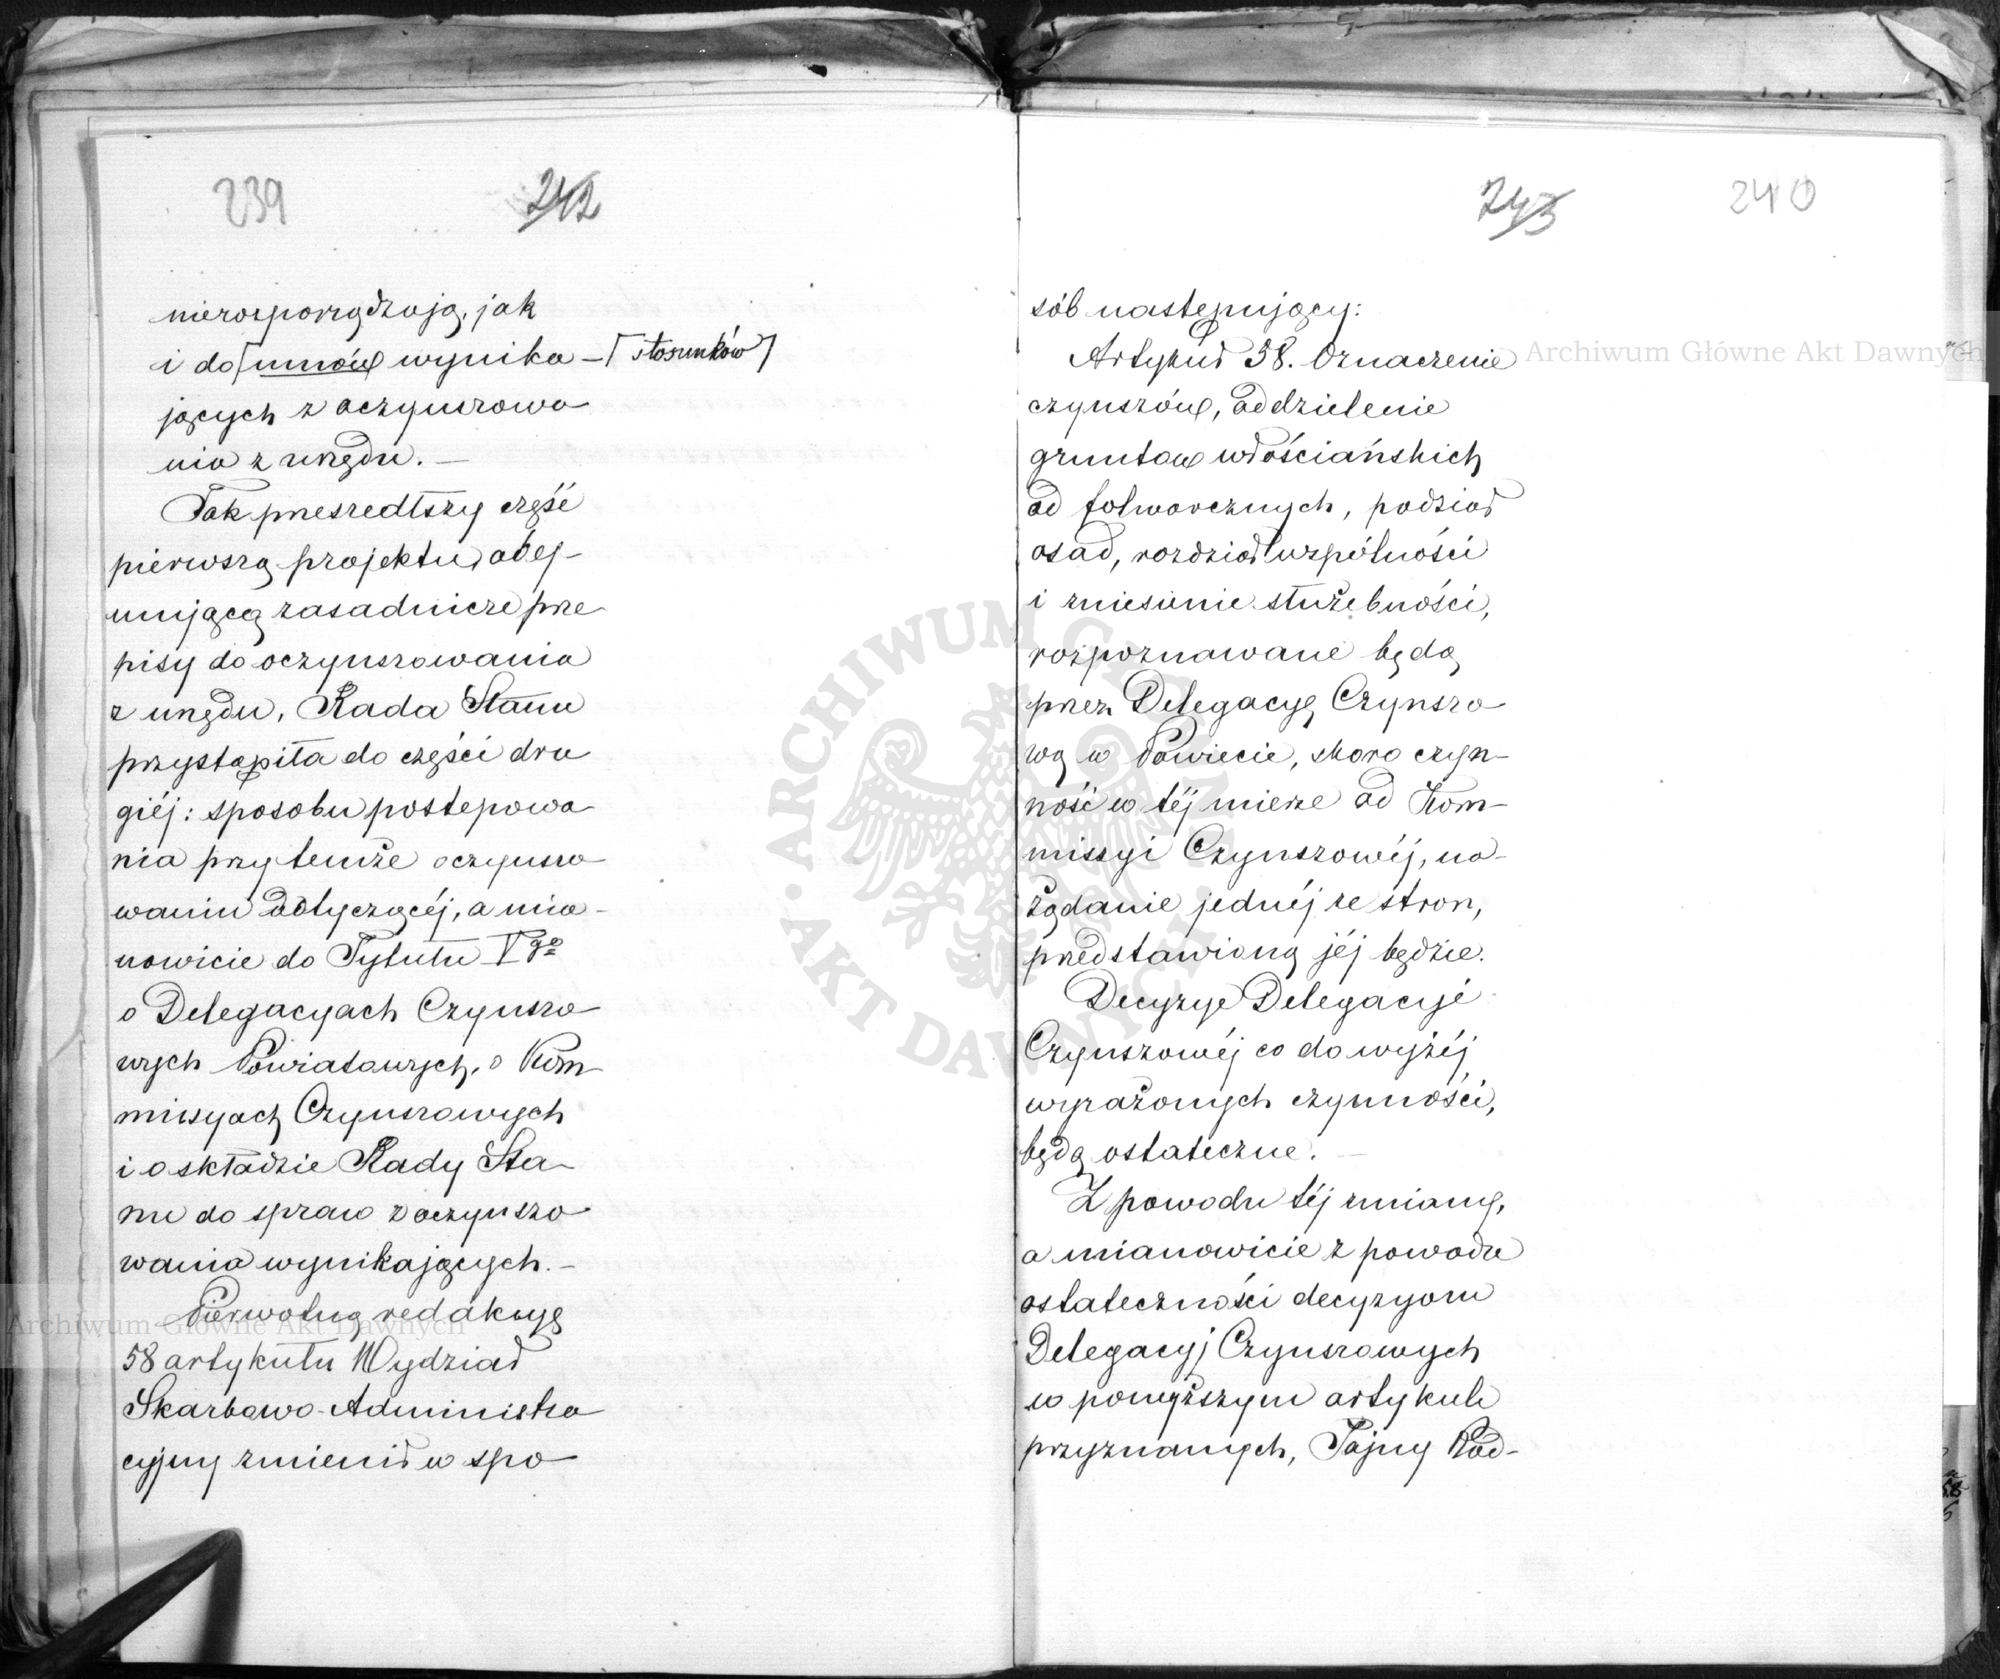 239
242
nierozporządzają, jak
i do ⌈umów⌉ wynika – ⌈stosunków⌉
jących z oczynszowa
nia z urzędu. —
Tak przeszedłszy część
pierwszą projektu, obej-
mującą zasadnicze prze
pisy do oczynszowania
z urzędu, Rada Stanu
przystąpiła do części dru
giéj: sposobu postępowa
nia przy temże oczynszo
waniu dotyczącéj, a mia-
nowicie do Tytułu V go
o Delegacyach Czynszo
wych Powiatowych, o Kom
missyach Czynszowych
i o składzie Rady Sta
nu do spraw z oczynszo
wania wynikających. –
Pierwotną redakcyę
58 artykułu Wydział
Skarbowo-Administra
cyjny zmienił w spo
243
240
sób następujący:
Artykuł 58. Oznaczenie
czynszów, oddzielenie
gruntów włościańskich
od folwarcznych, podział
osad, rozdział wspólności
i zniesienie służebności,
rozpoznawane będą
przez Delegacyę Czynszo
wą w Powiecie, skoro czyn-
ność w téj mierze od Kom-
missyi Czynszowéj, na-
żądanie jednéj ze stron,
przedstawioną jéj będzie.
Decyzye Delegacyi
Czynszowéj co do wyżéj
wyrażonych czynności,
będą ostateczne. —
Z powodu téj zmiany,
a mianowicie z powodu
ostateczności decyzyom
Delegacyj Czynszowych
w powyższym artykule
przyznanych, Tajny Rad-
Archiwum Główne Akt Dawnych
Archiwum Główne Akt Dawnych
ARCHIWUM GŁÓWNE AKT DAWNYCH